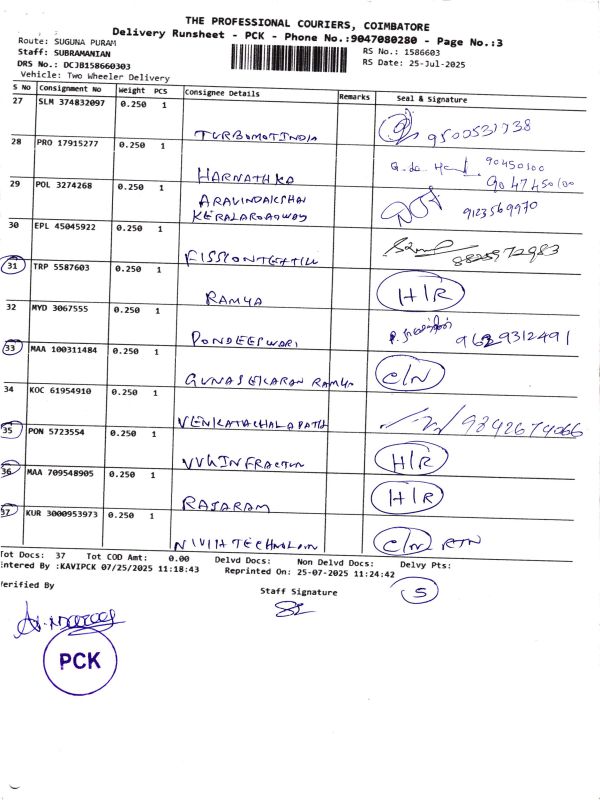 THE PROFESSIONAL COURIERS, COIMBATORE
Delivery Runsheet - PCK - Phone No.:9047080280 - Page No.:3
Route: SUGUNA PURAM
RS No.: 1586603
Staff: SUBRAMANIAN
RS Date: 25-Jul-2025
DRS No.: DCJB158660303
Vehicle: Two Wheeler Delivery
S No Consignment No Weight PCS Consignee Details Remarks Seal & Signature
27 SLM 374832097 0.250 1
TURBOMOTINDIA 9500531738
28 PRO 17915277 0.250 1
HARNATHKA 90450100
9047450100
29 POL 3274268 0.250 1 ARAVINDAKSHAN
KERALAROADWAY 9123569970
30 EPL 45045922 0.250 1
FISSIONTEXTILE 8825972983
31 TRP 5587603 0.250 1
RAMYA H/R
32 MYD 3067555 0.250 1
PONDEESWARI 9629312491
33 MAA 100311484 0.250 1
GUNASEKARAN RAMYA C/N
34 KOC 61954910 0.250 1
VENKATACHALAPATH 9842674066
35 PON 5723554 0.250 1
VVKINFRACTUR H/R
36 MAA 709548905 0.250 1
RAJARAM H/R
37 KUR 3000953973 0.250 1
C/N RTN
Tot Docs: 37 Tot COD Amt: 0.00 Delvd Docs: Non Delvd Docs: Delvy Pts:
Entered By :KAVIPCK 07/25/2025 11:18:43 Reprinted On: 25-07-2025 11:24:42
Verified By
Staff Signature
5
PCK